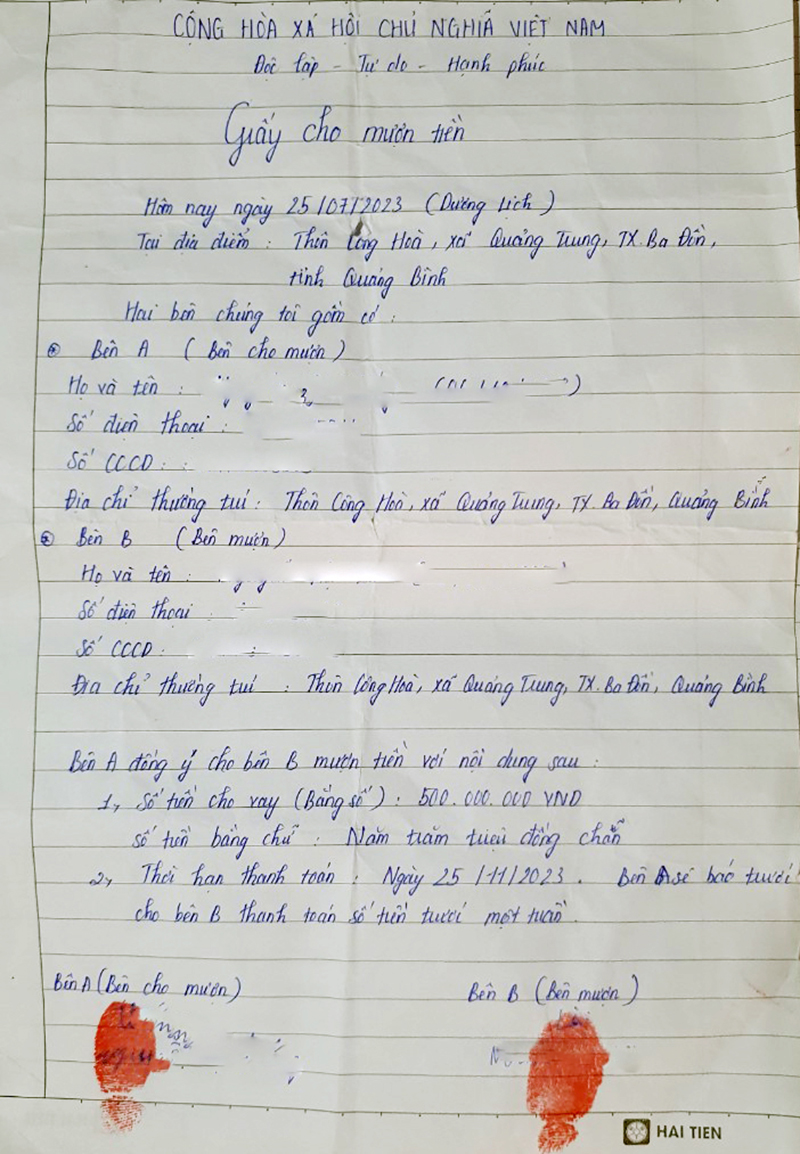 CỘNG HÒA XÃ HỘI CHỦ NGHĨA VIỆT NAM
Độc lập - Tự do - Hạnh phúc
Giấy cho mượn tiền
Hôm nay ngày 25/07/2023 (Dương Lịch)
Tại địa điểm : Thôn Công Hoà, xã Quảng Trung, TX. Ba Đồn,
tỉnh Quảng Bình
Hai bên chúng tôi gồm có :
Bên A (Bên cho mượn)
Họ và tên :
Số điện thoại :
Số CCCD :
Địa chỉ thường trú : Thôn Công Hoà, xã Quảng Trung, TX. Ba Đồn, Quảng Bình
Bên B (Bên mượn)
Họ và tên :
Số điện thoại :
Số CCCD :
Địa chỉ thường trú : Thôn Công Hoà, xã Quảng Trung, TX. Ba Đồn, Quảng Bình
Bên A đồng ý cho bên B mượn tiền với nội dung sau :
1, Số tiền cho vay (Bằng số) : 500.000.000 VND
Số tiền bằng chữ : Năm trăm triệu đồng chẵn
2, Thời hạn thanh toán : Ngày 25/11/2023. Bên A sẽ báo trước
cho bên B thanh toán số tiền trước một tuần.
Bên A (Bên cho mượn) Bên B (Bên mượn)
HAI TIEN